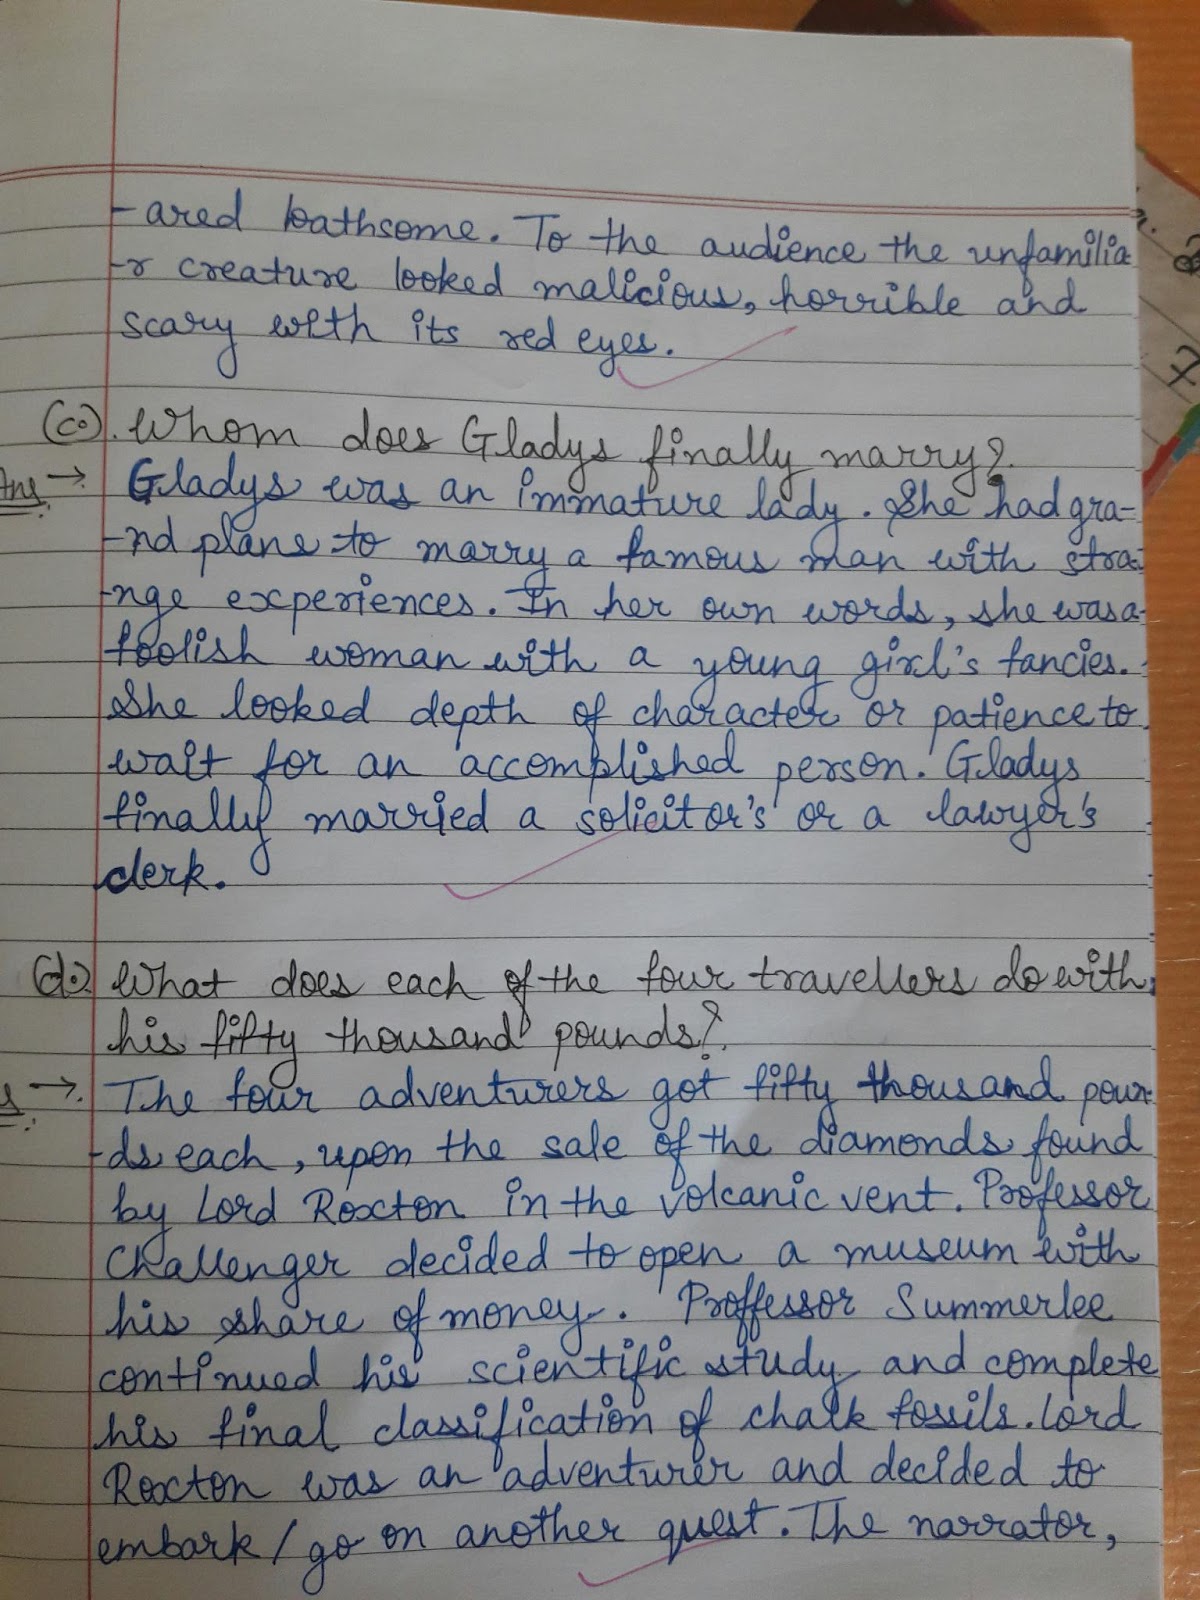 -ared loathsome. To the audience the unfamilia
-r creature looked malicious, horrible and
scary with its red eyes.
(c). Whom does Gladys finally marry?
Ans → Gladys was an immature lady. She had gra-
-nd plans to marry a famous man with stra-
-nge experiences. In her own words, she was a
foolish woman with a young girl's fancies.
She looked depth of character or patience to
wait for an accomplished person. Gladys
finally married a solicitor's or a lawyer's
clerk.
(d.) What does each of the four travellers do with
his fifty thousand pounds?
s →. The four adventurers got fifty thousand poun-
-ds each, upon the sale of the diamonds found
by Lord Roxton in the volcanic vent. Professor
Challenger decided to open a museum with
his share of money. Proffessor Summerlee
continued his scientific study and complete
his final classification of chalk fossils. Lord
Roxton was an adventurer and decided to
embark/go on another quest. The narrator,
7